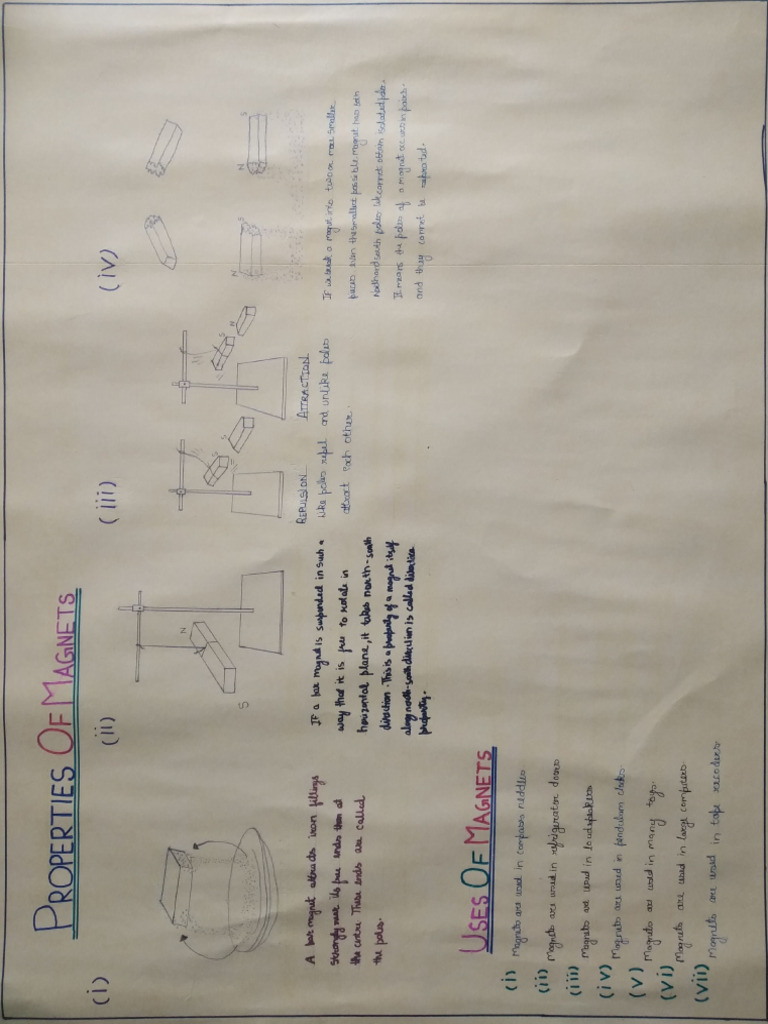 PROPERTIES OF MAGNETS
(i)
A bar magnet attracts iron fillings
strongly near its free ends than at
the centre These ends are called
the poles.
(ii)
N
S
If a bar magnet is suspended in such a
way that it is free to rotate in
horizontal plane, it takes north-south
direction. This is a property of a magnet itself
along north-south direction is called directive
property.
(iii)
S
N
REPULSION
ATTRACTION
Like poles repel and unlike poles
attract each other.
(iv)
N
S
N
S
If we break a magnet into two or more smaller
pieces even the smallest possible magnet has both
North and South poles. We cannot obtain isolated pole.
It means the poles of a magnet occurs in pairs.
and they cannot be seperated.
USES OF MAGNETS
(i) Magnets are used in compass neddles
(ii) Magnets are used in refrigerator doors
(iii) Magnets are used in loudspeakers
(iv) Magnets are used in pendulum
(v) Magnets are used in many toys.
(vi) Magnets are used in large
(vii) Magnets are used in tape recoders